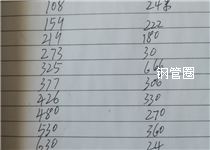 108 24米
159 222
219 180
273 30
325 666
377 306
426 330
480 270
530 360
630 24
钢管圈